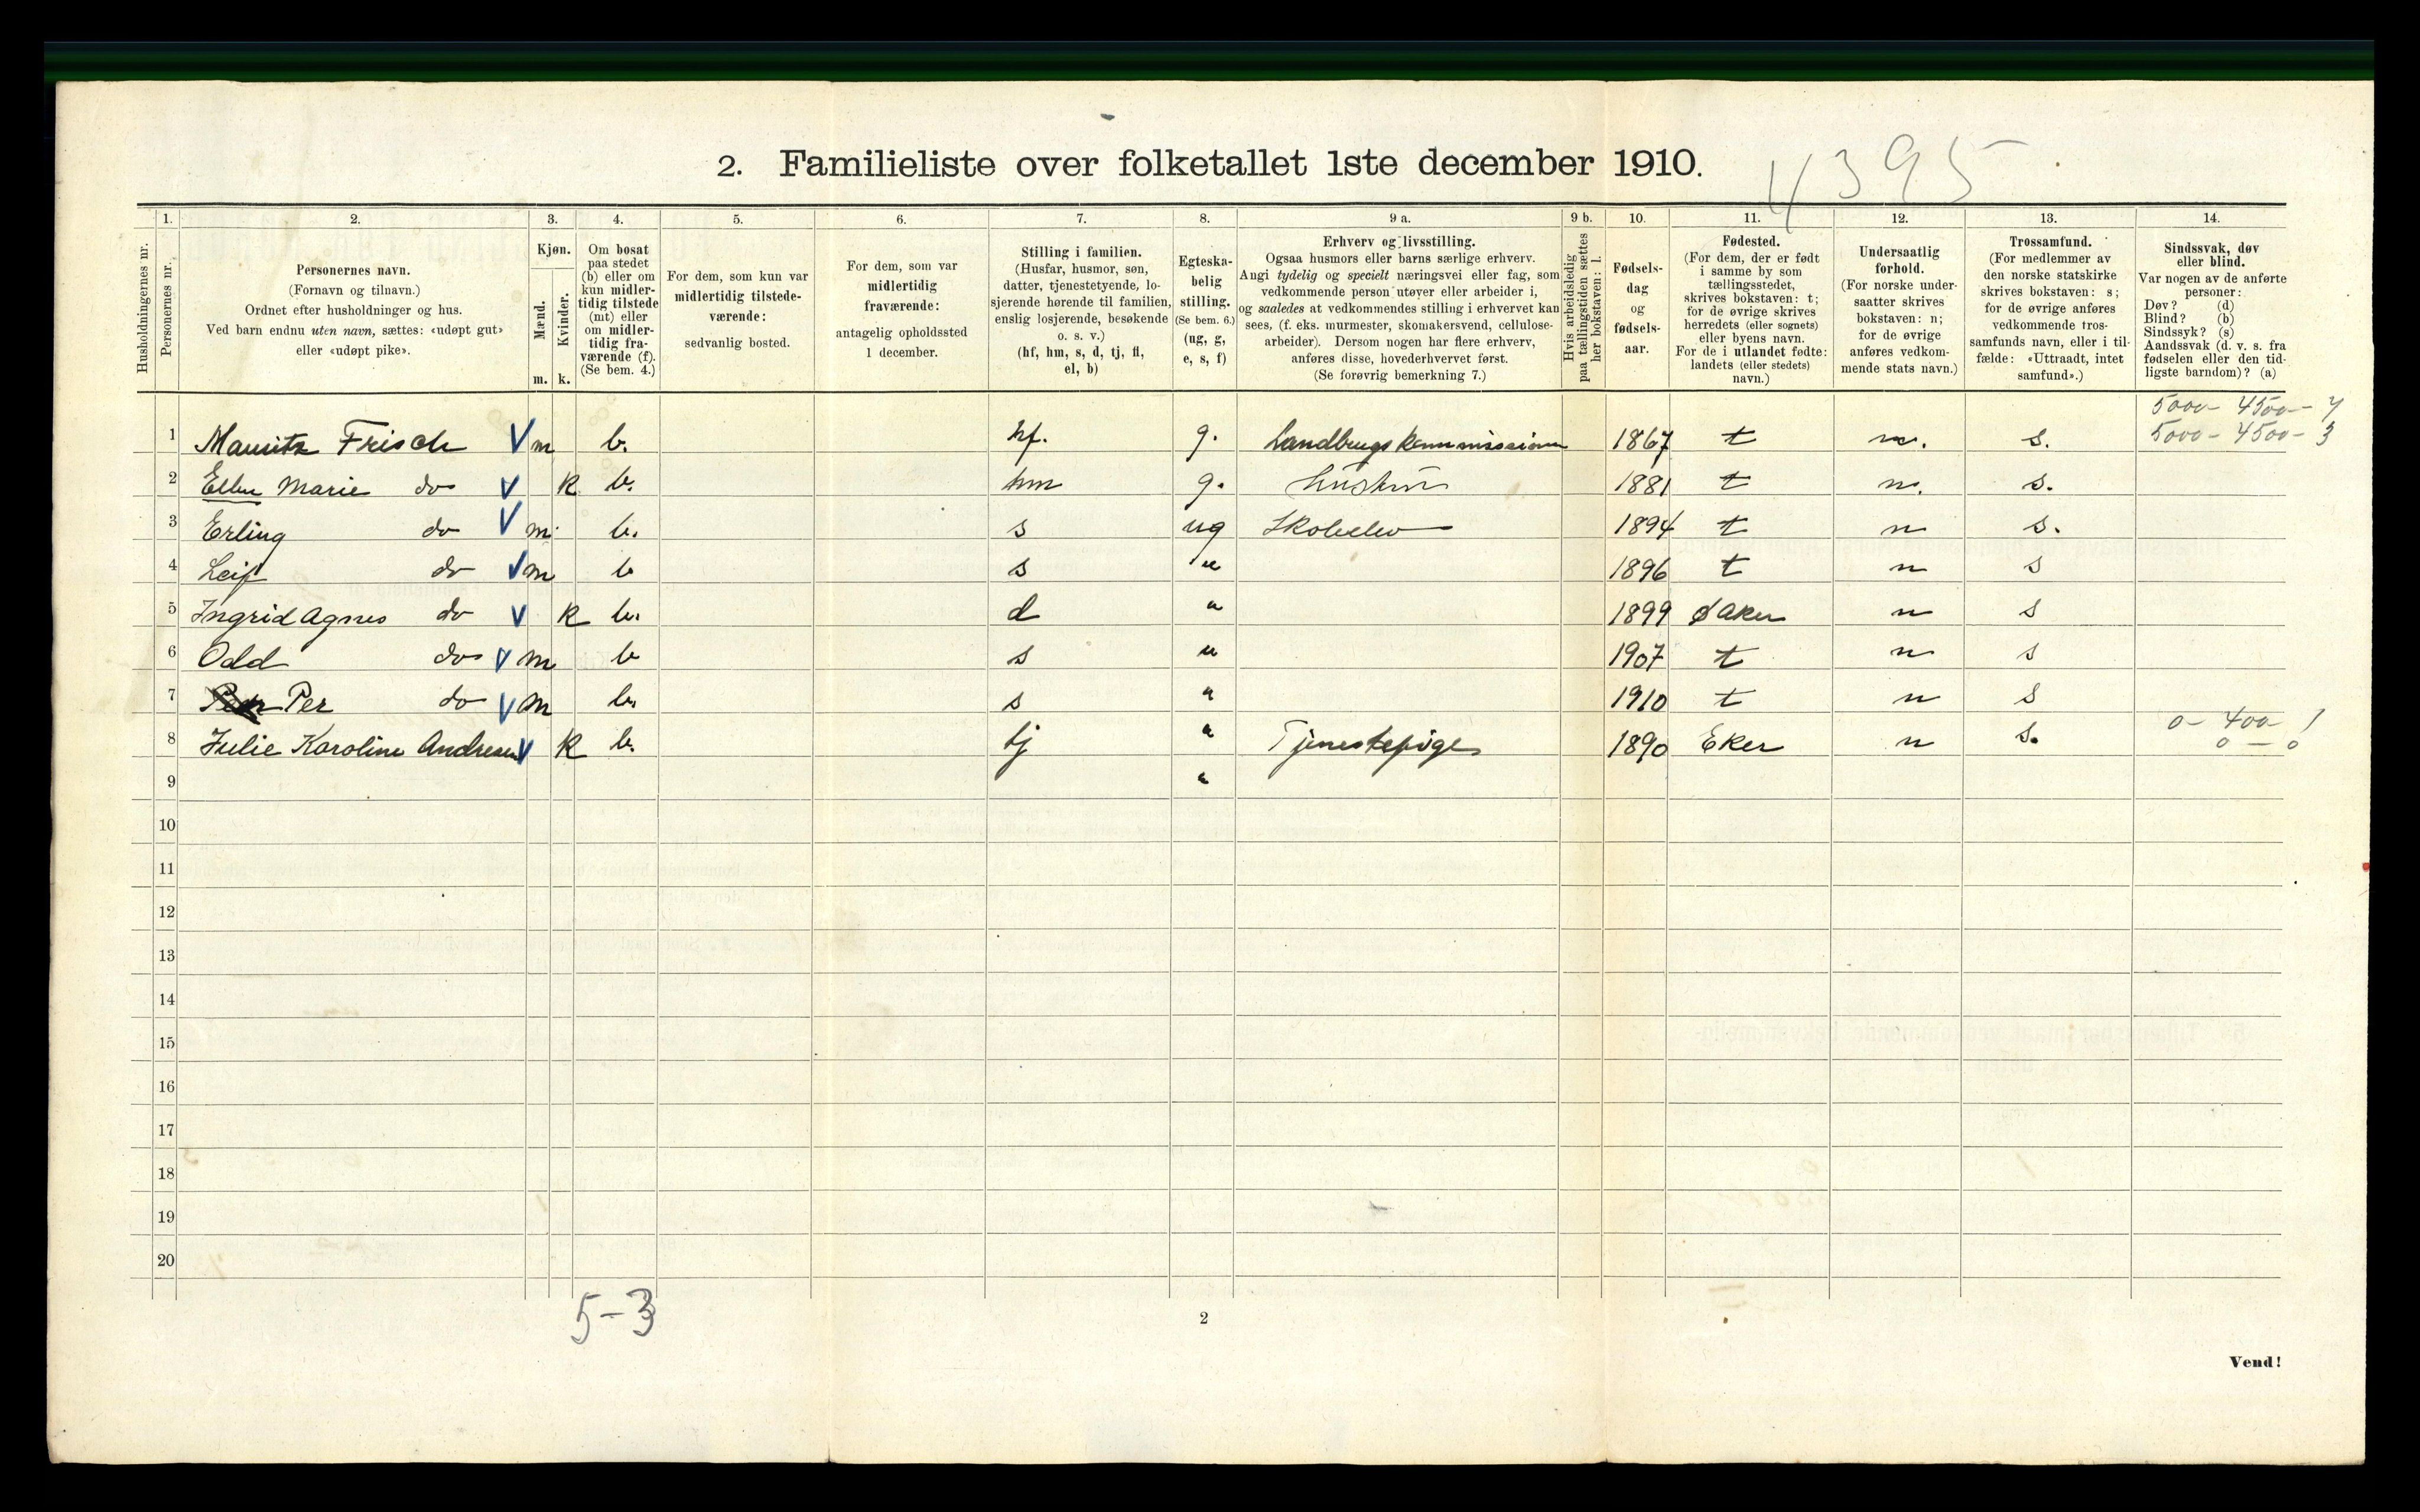 2. Familieliste over folketallet 1ste december 1910.
4395
1. 2. 3. 4. 5. 6. 7. 8. 9 a. 9 b. 10. 11. 12. 13. 14.
Husholdningernes nr.
Personernes nr.
Personernes navn.
(Fornavn og tilnavn.)
Ordnet efter husholdninger og hus.
Ved barn endnu uten navn, sættes: «udøpt gut»
eller «udøpt pike».
Kjøn.
Mænd.
Kvinder.
m. k.
Om bosat
paa stedet
(b) eller om
kun midler-
tidig tilstede
(mt) eller
om midler-
tidig fra-
værende (f).
(Se bem. 4.)
For dem, som kun var
midlertidig tilstede-
værende:
sedvanlig bosted.
For dem, som var
midlertidig
fraværende:
antagelig opholdssted
1 december.
Stilling i familien.
(Husfar, husmor, søn,
datter, tjenestetyende, lo-
sjerende hørende til familien,
enslig losjerende, besøkende
o. s. v.)
(hf, hm, s, d, tj, fl,
el, b)
Egteska-
belig
stilling.
(Se bem. 6.)
(ug, g,
e, s, f)
Erhverv og livsstilling.
Ogsaa husmors eller barns særlige erhverv.
Angi tydelig og specielt næringsvei eller fag, som
vedkommende person utøver eller arbeider i,
og saaledes at vedkommendes stilling i erhvervet kan
sees, (f. eks. murmester, skomakersvend, cellulose-
arbeider). Dersom nogen har flere erhverv,
anføres disse, hovederhvervet først.
(Se forøvrig bemerkning 7.)
Hvis arbeidsledig
paa tællingstiden sættes
her bokstaven: l.
Fødsels-
dag
og
fødsels-
aar.
Fødested.
(For dem, der er født
i samme by som
tællingsstedet,
skrives bokstaven: t;
for de øvrige skrives
herredets (eller sognets)
eller byens navn.
For de i utlandet fødte:
landets (eller stedets)
navn.)
Undersaatlig
forhold.
(For norske under-
saatter skrives
bokstaven: n;
for de øvrige
anføres vedkom-
mende stats navn.)
Trossamfund.
(For medlemmer av
den norske statskirke
skrives bokstaven: s;
for de øvrige anføres
vedkommende tros-
samfunds navn, eller i til-
fælde: «Uttraadt, intet
samfund».)
Sindssvak, døv
eller blind.
Var nogen av de anførte
personer:
Døv? (d)
Blind? (b)
Sindssyk? (s)
Aandssvak (d. v. s. fra
fødselen eller den tid-
ligste barndom)? (a)
5000 - 4500 - 4
1 Mauritz Frisch V m b. hf. g. Landbrugskommissioner 1867 t n. s. 5000 - 4500 - 3
2 Ellen Marie do V k b. hm g. Husmor 1881 t n. s.
3 Erling do V m. b. s ug Skoleelev 1894 t n s.
4 Leif do V m b s " 1896 t n s
5 Ingrid Agnes do V k b. d " 1899 Ø Aker n s
6 Odd do V m b s " 1907 t n s
7 Per do V m b. s " 1910 t n s
0 - 400 1
8 Julie Karoline Andresen V k b. tj " Tjenestepige 1890 Eker n s. 0 — 0
9 "
10
11
12
13
14
15
16
17
18
19
20
5-3
2
Vend!